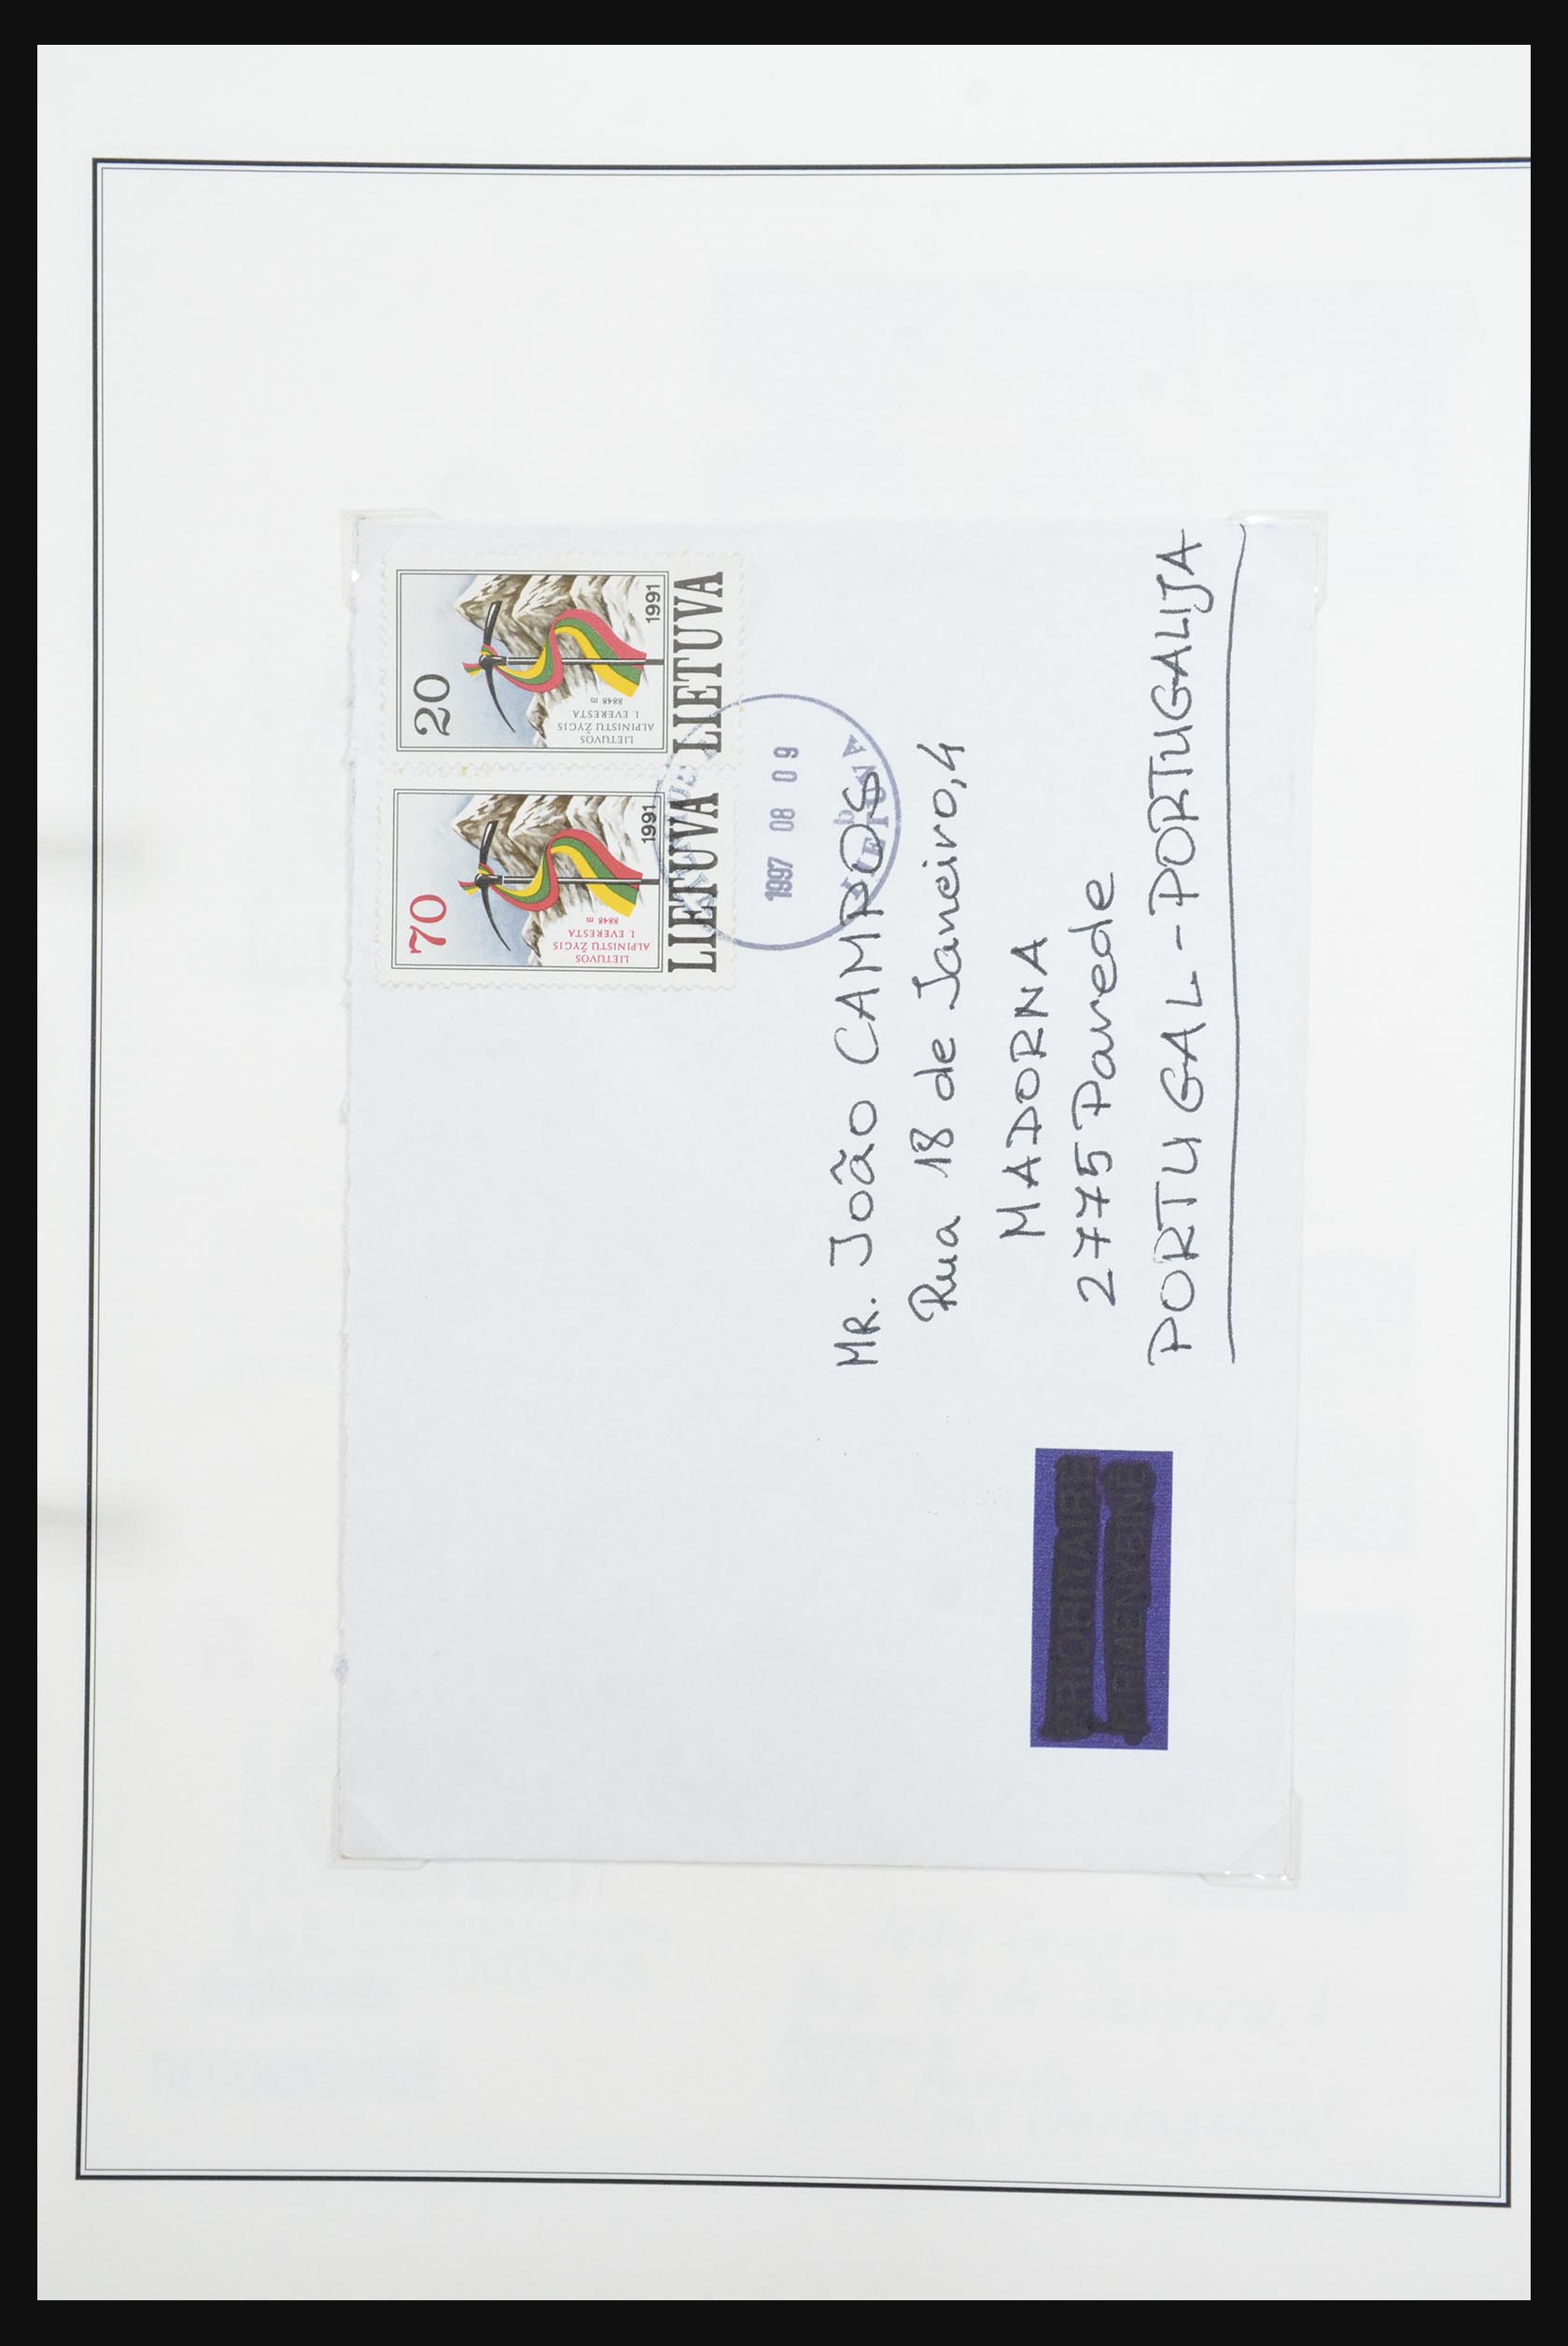 20
LIETUVOS
ALPINISTŲ ŽYGIS
Į EVERESTĄ
8848 m
1991
LIETUVA
70
LIETUVOS
ALPINISTŲ ŽYGIS
Į EVERESTĄ
8848 m
1991
LIETUVA
1997 08 09
b
LIETUVA
Mr. João CAMPOS
Rua 18 de Janeiro, 4
MADORNA
2775 Parede
PORTUGAL - PORTUGALIJA
PRIORITAIRE
PIRMENYBINĖ